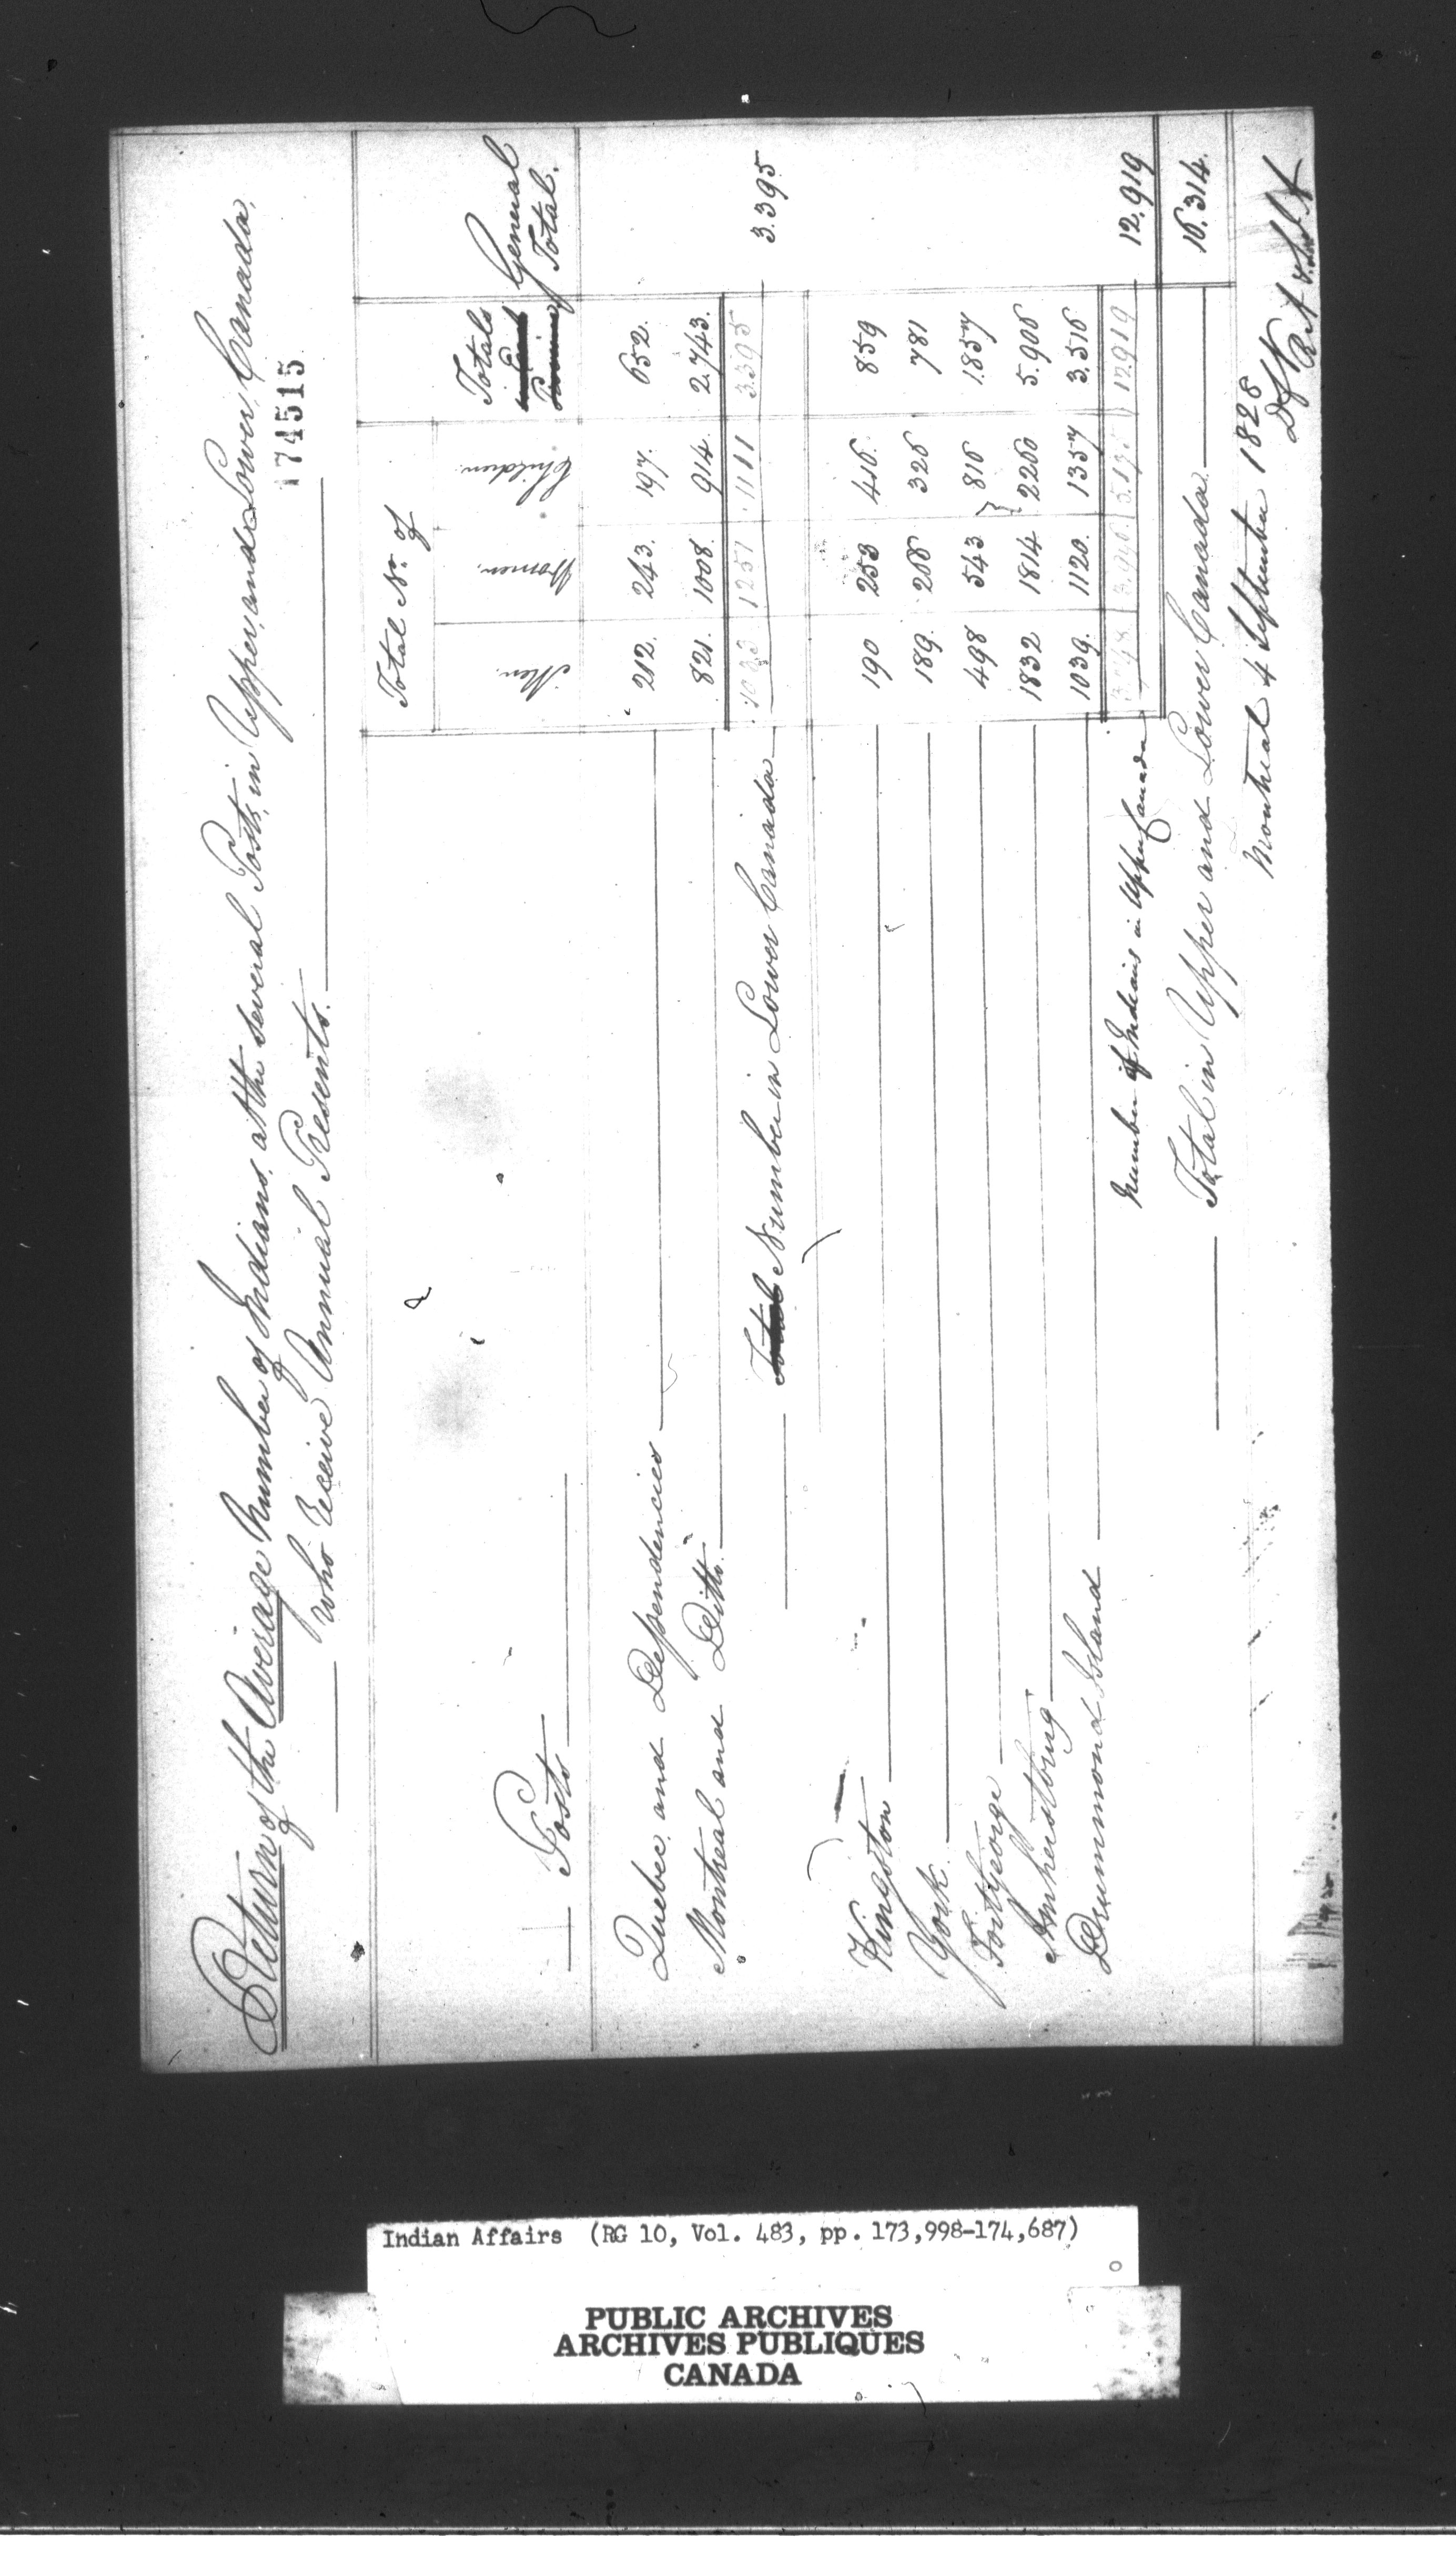 Return of the Average Number of Indians, at the several Posts, in Upper, and Lower, Canada,
who receive Annual Presents.
174515
Total No. of
Posts Men. Women. Children. Totals in Each Province General Total.
Quebec, and Dependencies 212. 243. 197. 652.
Montreal and Ditto 821. 1008. 914. 2.743.
Total Number in Lower Canada 1033 1251 1111 3395 3.395
Kingston 190 253 416. 859
York 189. 266 326 781
Fort George 498 543 } 816 1.857
Amherstburg 1832 1814 2260 5.906
Drummond Island 1039. 1120. 1357 3.516
Number of Indians in Upper Canada 12919 12.919
Total in Upper and Lower Canada 16.314.
Montreal 4 September 1828
Indian Affairs (RG 10, Vol. 483, pp. 173,998-174,687)
PUBLIC ARCHIVES
ARCHIVES PUBLIQUES
CANADA